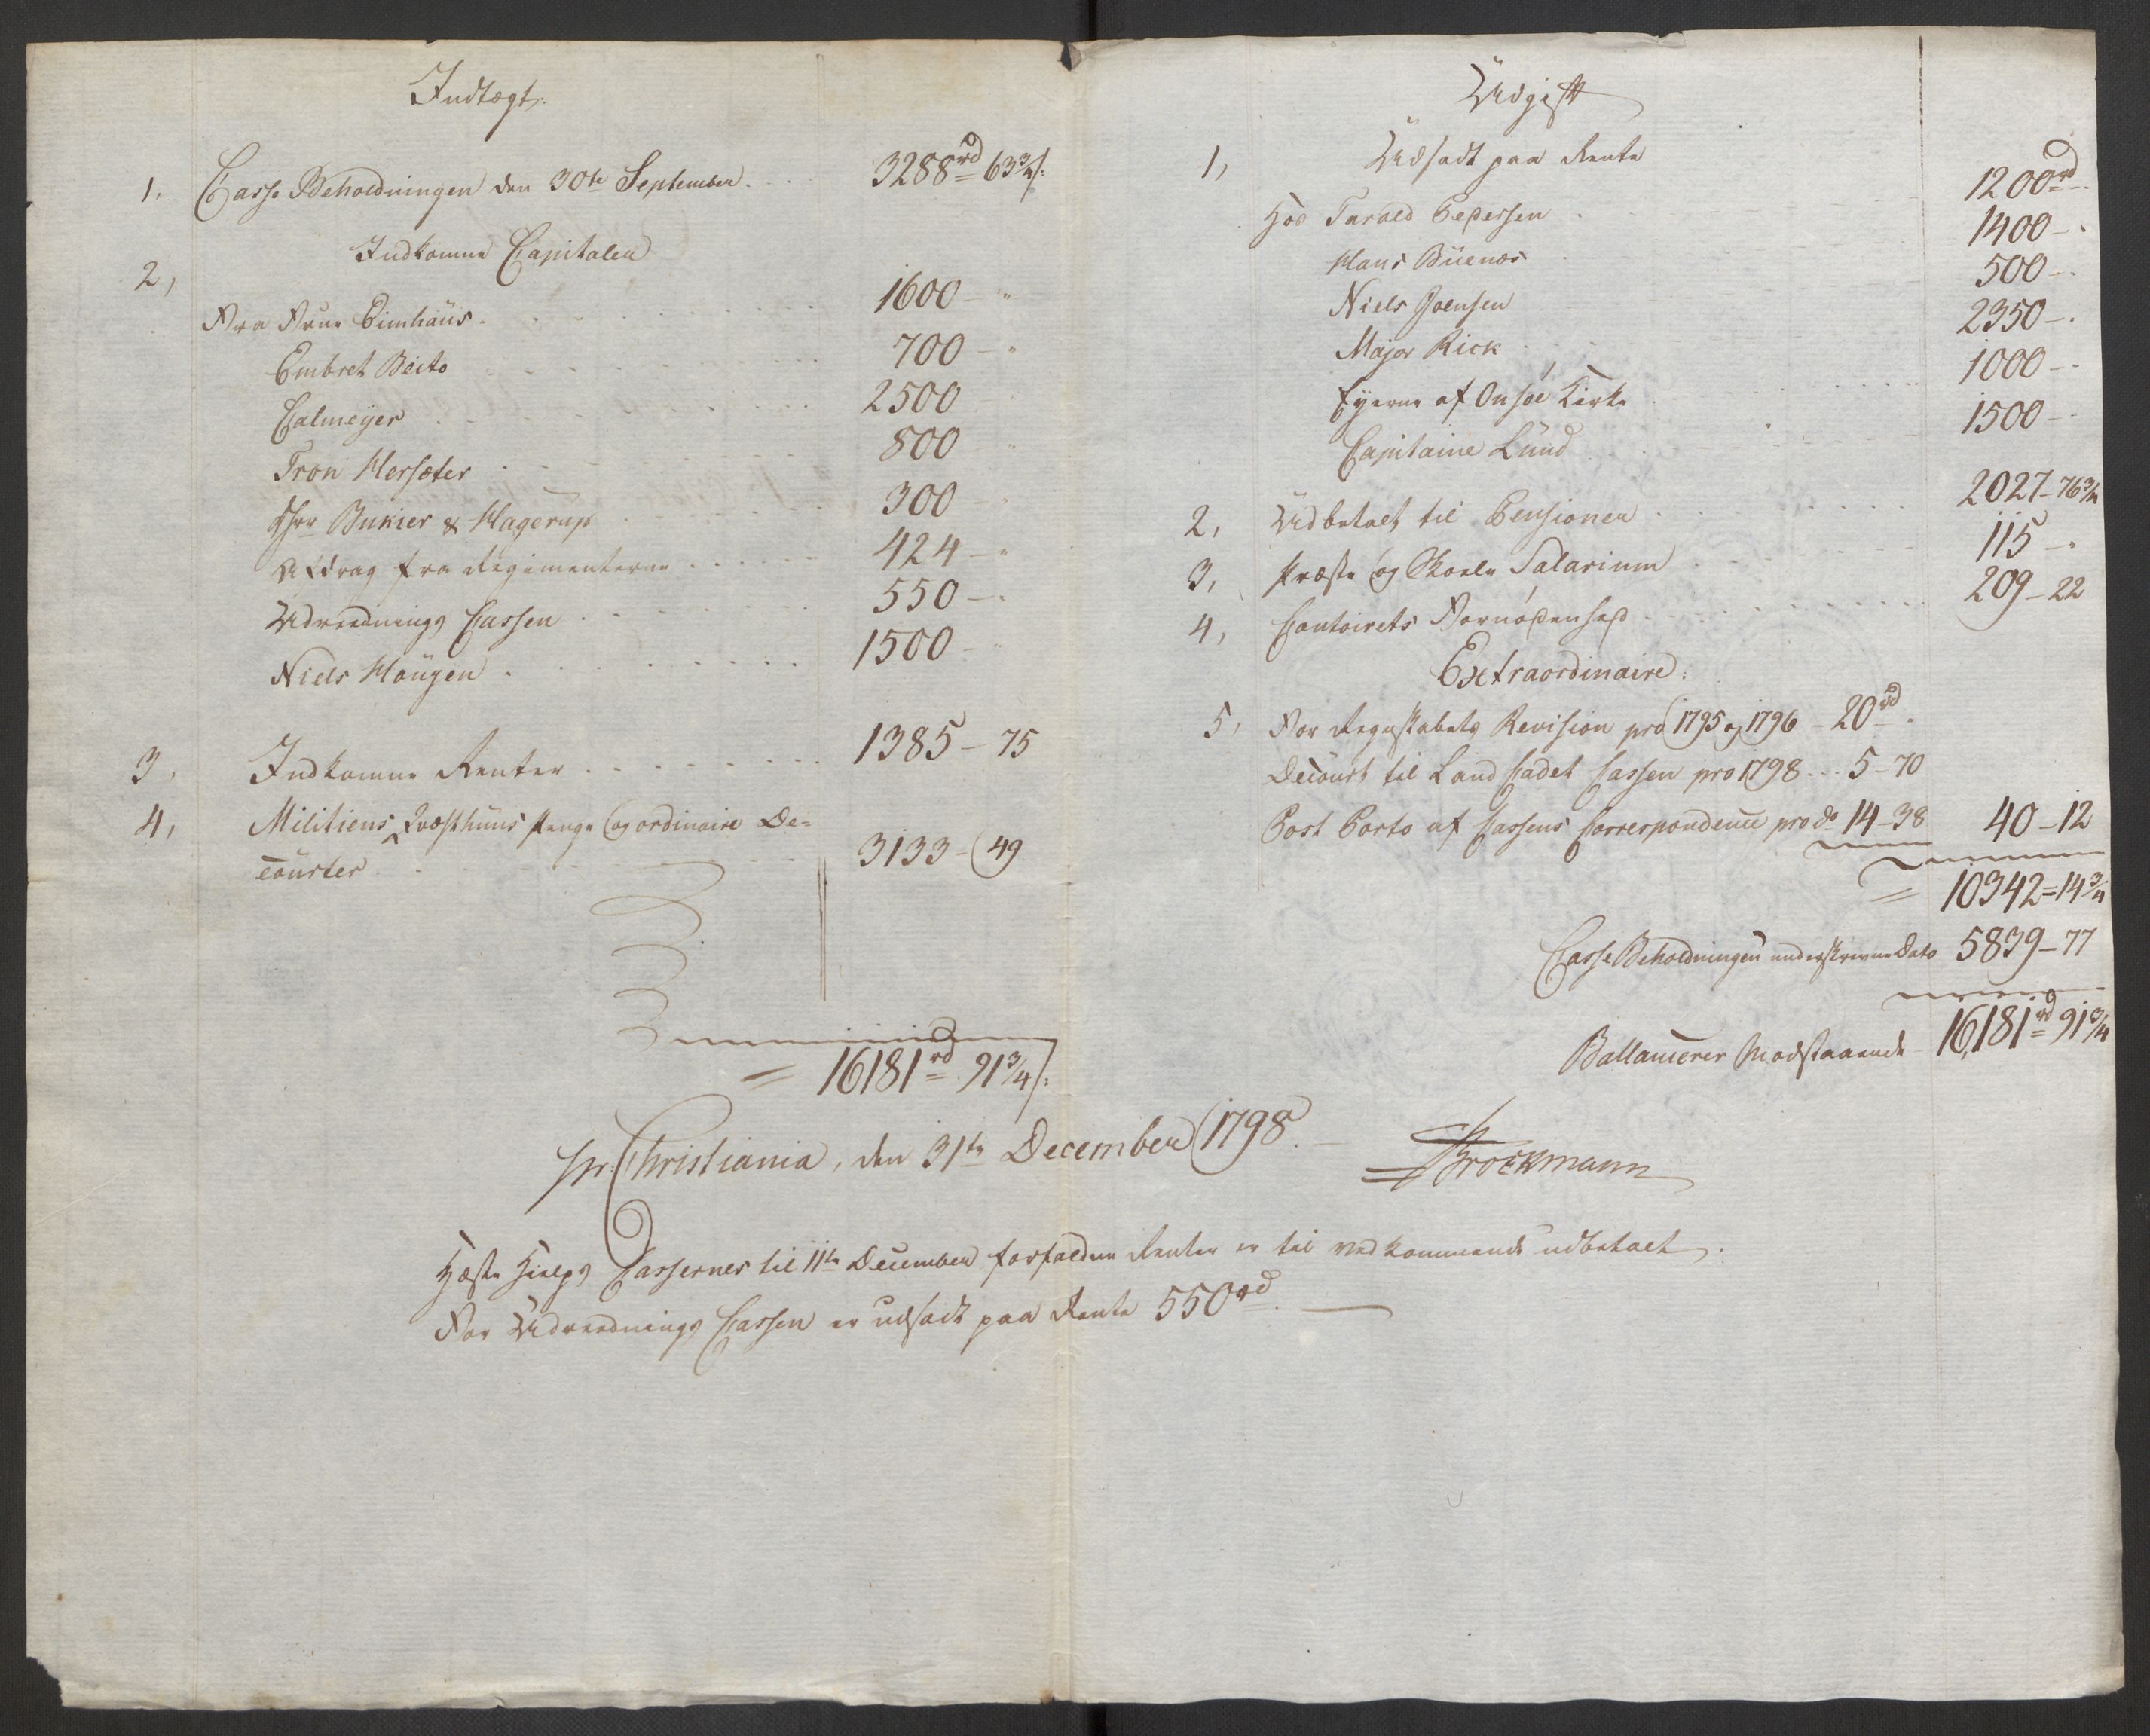 Indtægt.
1. Casse Beholdningen den 30te September. 3288rd 63¾ s:
2, Indkomne Capitaler
Fra Frue Pimhaüs. 1600 - "
Embret Beito 700 - "
Calmeÿer 2500
Tron Hersæter 800 "
Hrr Bukier & Hagerup 300 - "
Afdrag fra Regimenterne 424 - "
Udreednings Cassen 550 - "
Niels Haügen 1500 - "
3, Indkomne Renter 1385 - 75
4, Militiens Qvæsthuus Penge og ordinaire De-
courter 3133 - 49
= 16181rd 91¾ s:
Udgift
1, Udsadt paa Rente
Hos Tarald Pedersen 1200rd -
Hans Büenæs 1400 - "
Niels Joensen 500 - "
Major Rick 2350 - "
Eÿerne af Onsöe Kirke 1000 - "
Capitaine Lünd 1500 - "
2, Udbetalt til Pensioner 2027 - 76¾
3, Præste og Skole Salarium 115 - "
4, Contoirets Fornødenhed 209 - 22
Extraordinaire:
5, For Regnskabets Revision pro 1795 og 1796 - 20rd "
Decourt til Land Cadet Cassen pro 1798 5 - 70
Post Porto af Cassens Correspondence pro do 14 - 38 40 - 12
= 10342 = 14¾
Casse Beholdningen underskrevne Dato 5839 - 77
Ballancerer Modstaaende 16,181rd 91¾
Christiania, den 31te December 1798.
Brockmann
Hæste Hielps Cassernes til 11te December forfaldne Renter er til vedkommende udbetalt.
For Udreednings Cassen er udsadt paa Rente 550rd.